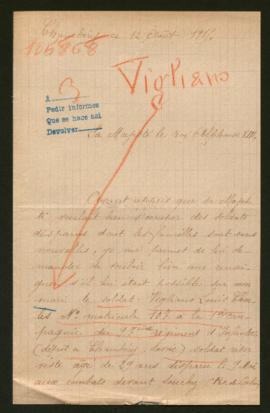 Chambéry, ce 12 Août 191
106868
3
Vigliano
A
Pedir informes
Que se hace así
Devolver
Sa Majesté le roi Alphonse XIII,
appris que Sa Majes
té voulait bien s'occuper des soldats
disparus dont les familles sont sans
nouvelles, je me permet de lui de
mander de vouloir bien me rensei
gner s'il lui était possible sur mon
mari le soldat Vigliano Louis
les Nº matricule 107 à la 1ère com
pagnie du 97ème régiment d'Infanterie
(dépôt à Chambéry, Savoie) soldat réser
viste âgé de 29 ans disparu le 9 Mai
aux combats devant Souchez (Pas de Calais